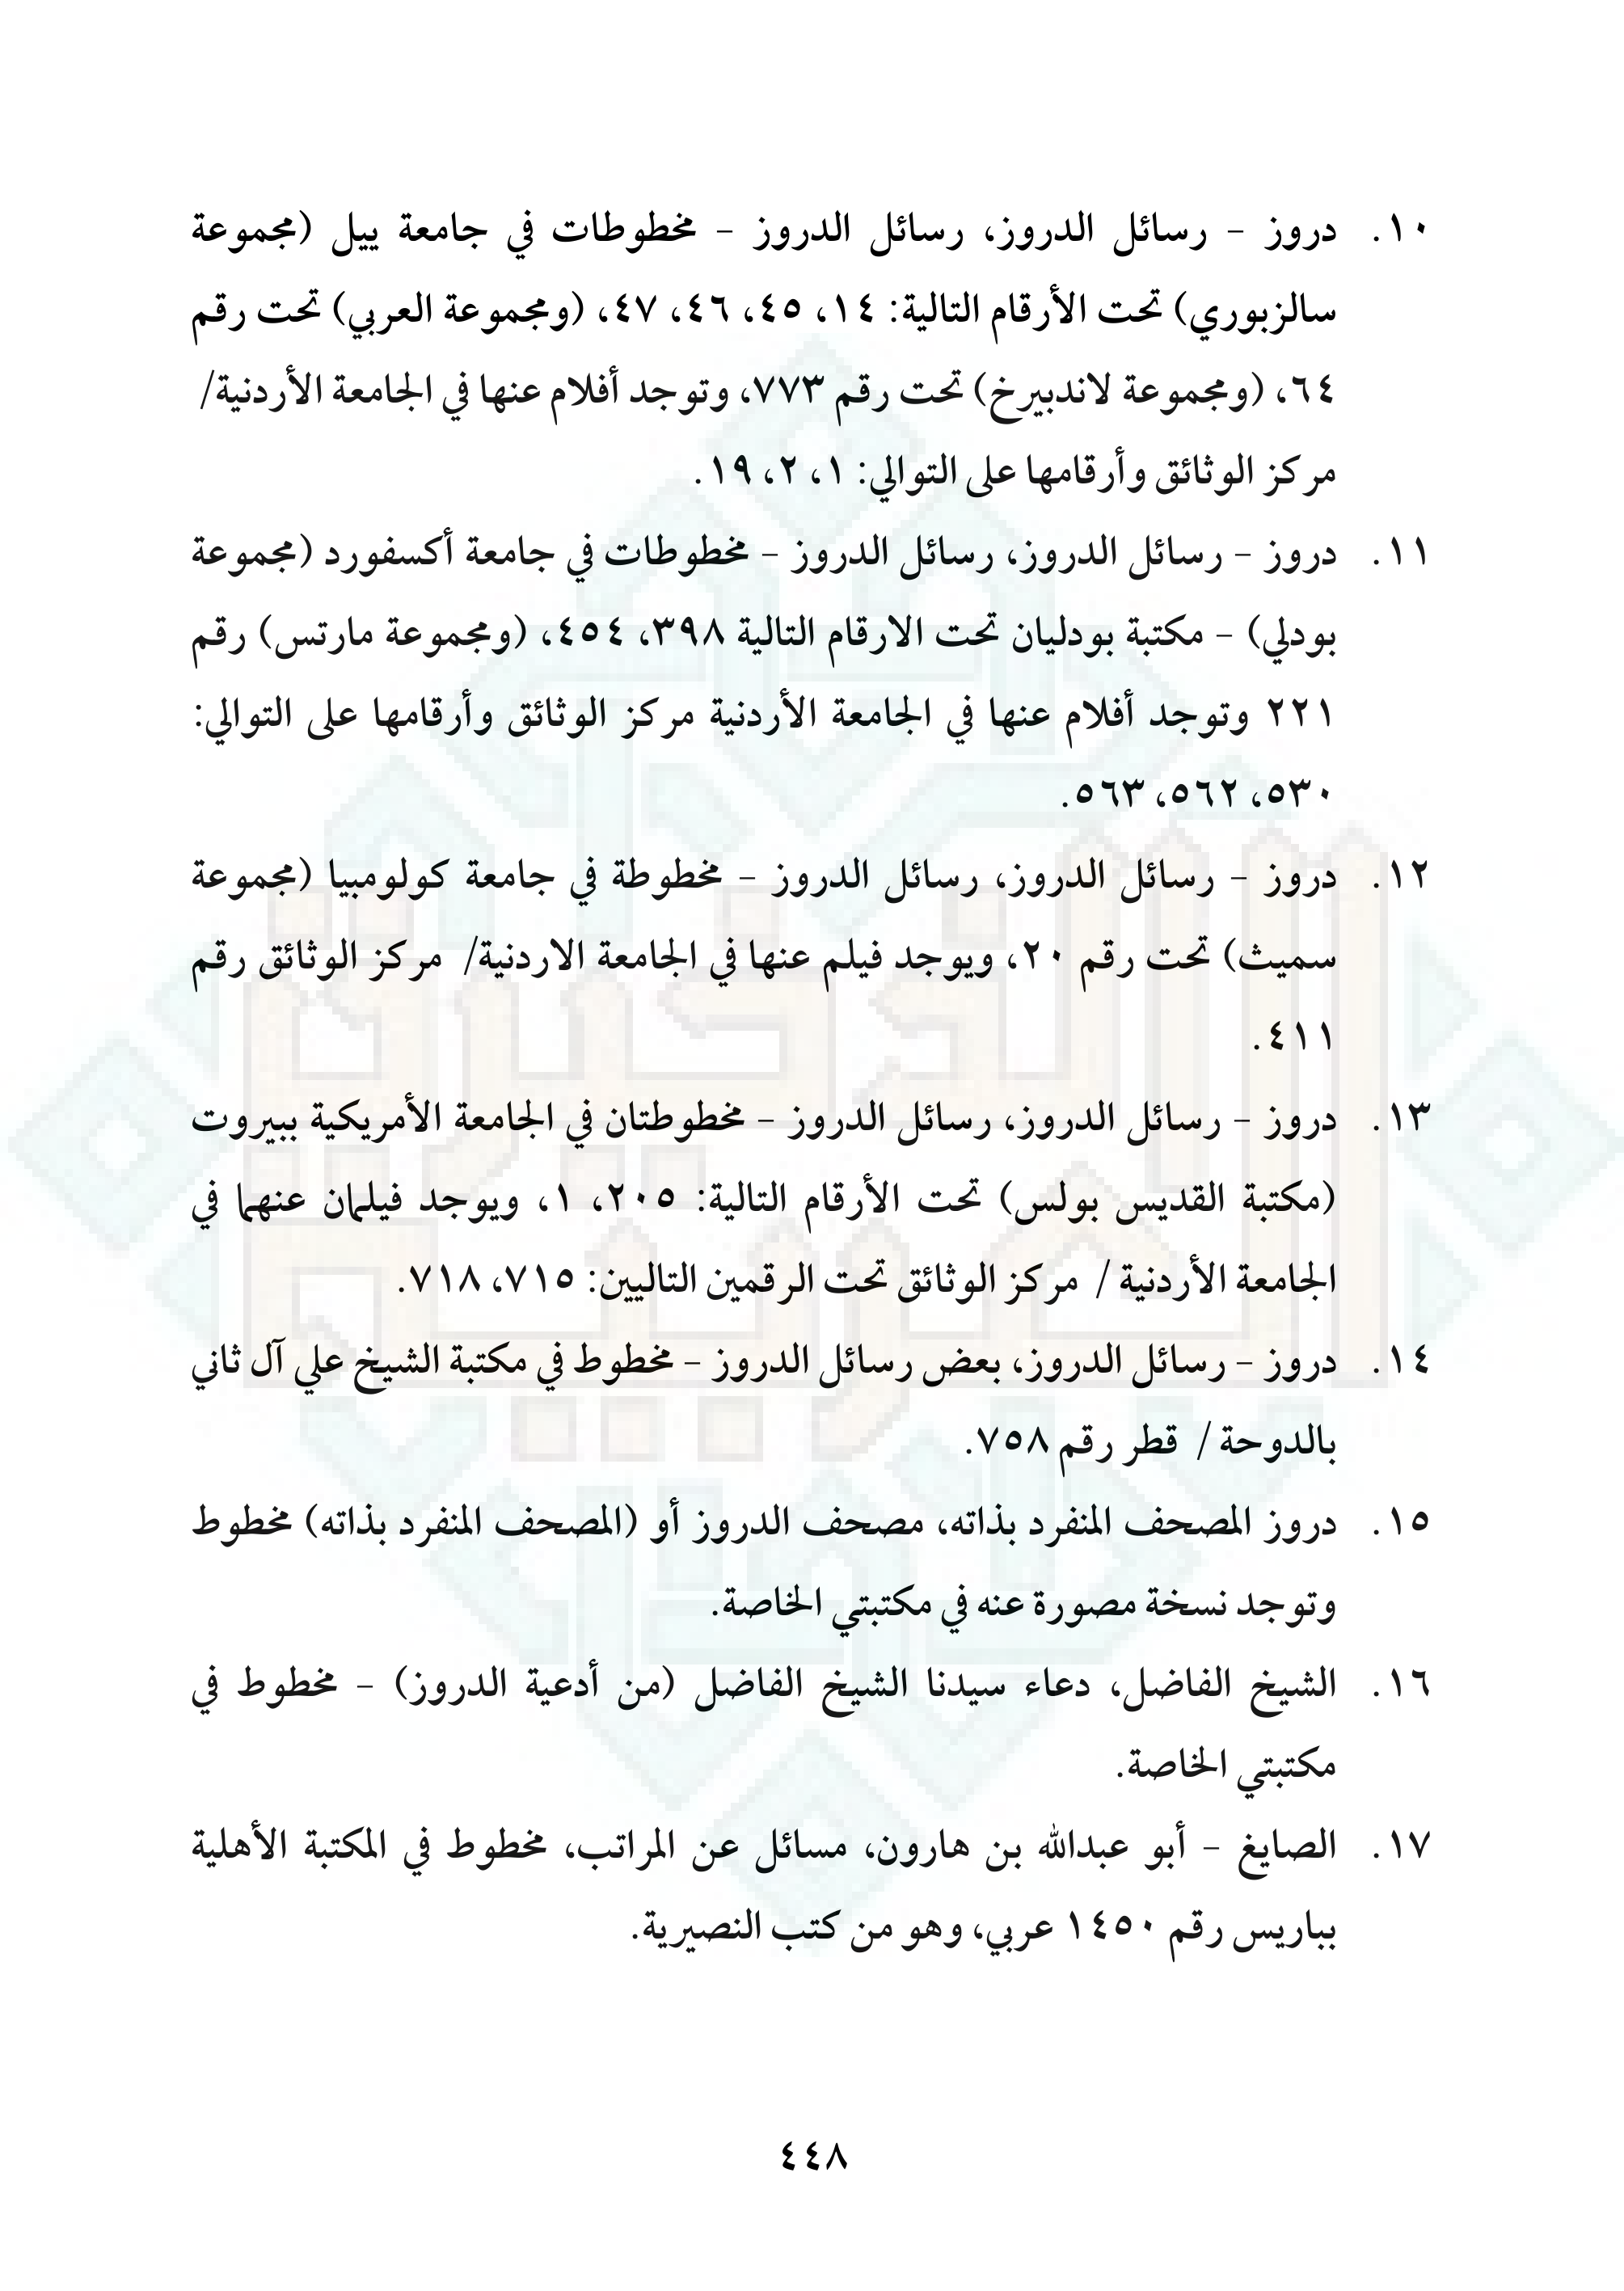 ١٠. دروز – رسائل الدروز، رسائل الدروز – مخطوطات في جامعة ييل (مجموعة
سالزبوري) تحت الأرقام التالية: ١٤، ٤٥، ٤٦، ٤٧، (ومجموعة العربي) تحت رقم
٦٤، (ومجموعة لاندبيرخ) تحت رقم ٧٧٣، وتوجد أفلام عنها في الجامعة الأردنية/
مركز الوثائق وأرقامها على التوالي: ١، ٢، ١٩.
١١. دروز – رسائل الدروز، رسائل الدروز – مخطوطات في جامعة أكسفورد (مجموعة
بودلي) – مكتبة بودليان تحت الارقام التالية ٣٩٨، ٤٥٤، (ومجموعة مارتس) رقم
٢٢١ وتوجد أفلام عنها في الجامعة الأردنية مركز الوثائق وأرقامها على التوالي:
٥٣٠، ٥٦٢، ٥٦٣.
١٢. دروز – رسائل الدروز، رسائل الدروز – مخطوطة في جامعة كولومبيا (مجموعة
سميث) تحت رقم ٢٠، ويوجد فيلم عنها في الجامعة الاردنية/ مركز الوثائق رقم
٤١١.
١٣. دروز – رسائل الدروز، رسائل الدروز – مخطوطتان في الجامعة الأمريكية ببيروت
(مكتبة القديس بولس) تحت الأرقام التالية: ٢٠٥، ١، ويوجد فيلمان عنهما في
الجامعة الأردنية / مركز الوثائق تحت الرقمين التاليين: ٧١٥، ٧١٨.
١٤. دروز – رسائل الدروز، بعض رسائل الدروز – مخطوط في مكتبة الشيخ علي آل ثاني
بالدوحة / قطر رقم ٧٥٨.
١٥. دروز المصحف المنفرد بذاته، مصحف الدروز أو (المصحف المنفرد بذاته) مخطوط
وتوجد نسخة مصورة عنه في مكتبتي الخاصة.
١٦. الشيخ الفاضل، دعاء سيدنا الشيخ الفاضل (من أدعية الدروز) – مخطوط في
مكتبتي الخاصة.
١٧. الصايغ – أبو عبدالله بن هارون، مسائل عن المراتب، مخطوط في المكتبة الأهلية
بباريس رقم ١٤٥٠ عربي، وهو من كتب النصيرية.
الذخيرة
العربية
٤٤٨